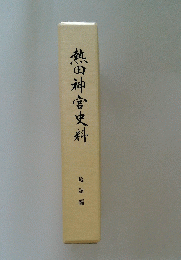 熱田神宮史料